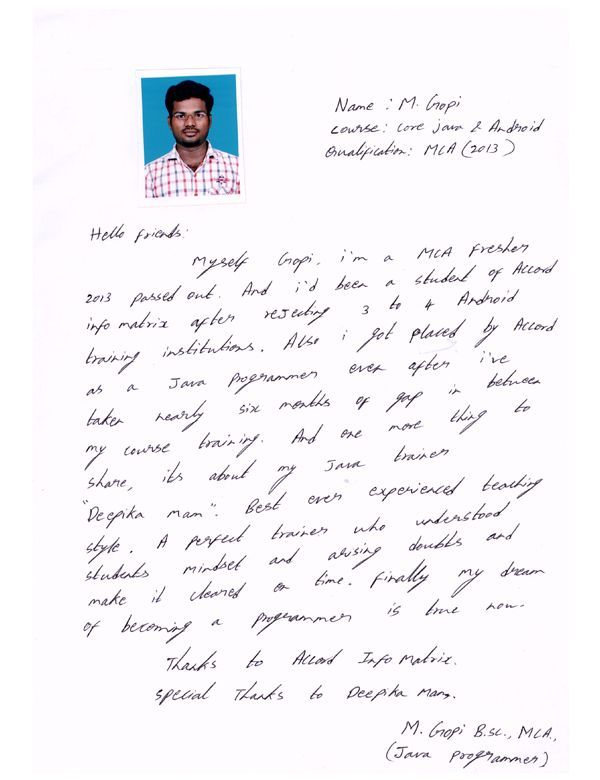 Name : M. Gopi
Course: Core java & Android
Qualification: MCA (2013)
Hello friends:
Myself Gopi, i'm a MCA Fresher
2013 passed out. And i'd been a student of Accord
info matrix after rejecting 3 to 4 Android
training institutions. Also i got placed by Accord
as a Java Programmer even after i've
taken nearly six months of gap in between
my course training. And one more thing to
share, its about my Java trainer
"Deepika Mam". Best ever experienced teaching
style. A perfect trainer who understood
students mindset and arising doubts and
make it cleared on time. Finally my dream
of becoming a programmer is true now.
Thanks to Accord Info Matrix.
Special Thanks to Deepika Mam.
M. Gopi B.sc., MCA.,
(Java programmer)